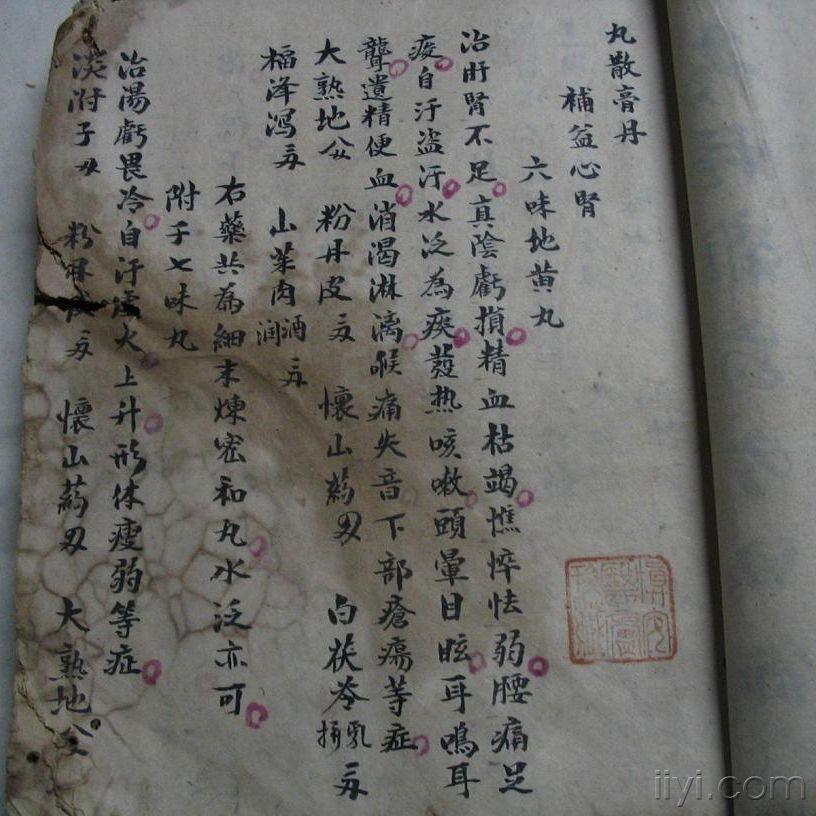 丸散膏丹
補益心腎
六味地黄丸
治肝腎不足真陰虧損精血枯竭憔悴怯弱腰痛足
痠自汗盗汗水泛為痰發热咳嗽頭暈目眩耳鳴耳
聾遺精便血消渴淋漓喉痛失音下部瘡瘍等症
大熟地 粉丹皮 懷山葯 白茯苓乳拌
福澤瀉 山茱肉酒润
右藥共為細末煉密和丸水泛亦可
附子七味丸
治陽虧畏冷自汗虚火上升形体瘦弱等症
淡附子 粉丹皮 懷山葯 大熟地
iiyi.com